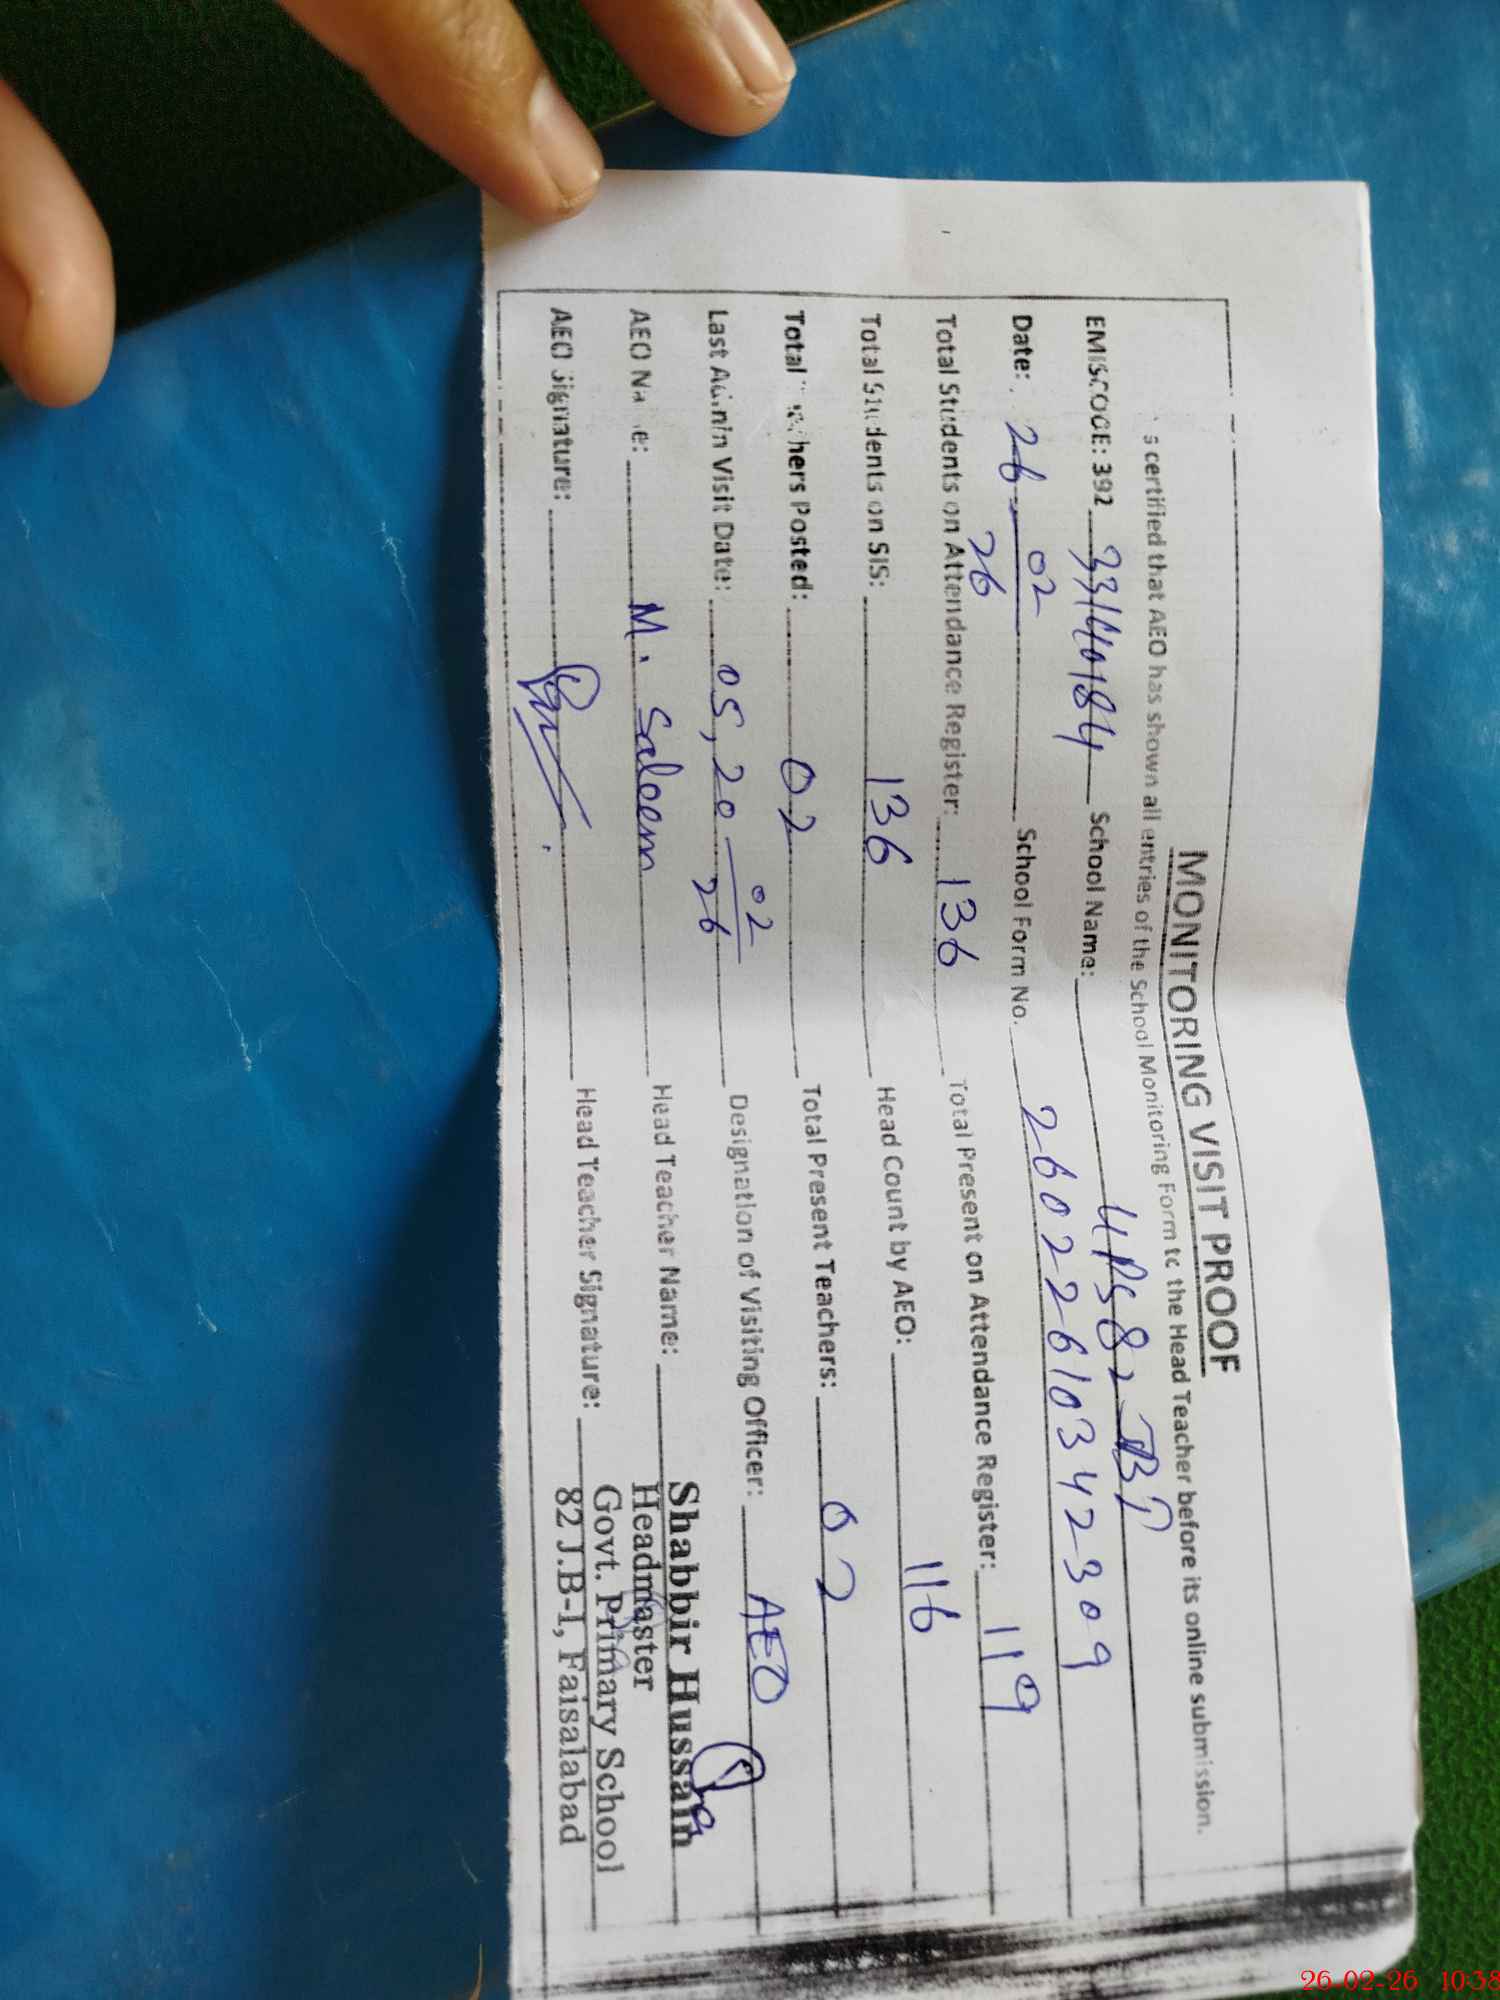 MONITORING VISIT PROOF
s certified that AEO has shown all entries of the School Monitoring Form to the Head Teacher before its online submission.
EMISCODE: 392 33140184 School Name: GPS 82 JB I
Date: 26-02 26 School Form No. 26022610342309
Total Students on Attendance Register: 136 Total Present on Attendance Register: 119
Total Students on SIS: 136 Head Count by AEO: 116
Total Teachers Posted: 02 Total Present Teachers: 02
Last Admin Visit Date: 05, 20-02 26 Designation of Visiting Officer: AEO
AEO Name: M. Saleem Head Teacher Name:
AEO Signature: Head Teacher Signature:
Shabbir Hussain
Headmaster
Govt. Primary School
82 J.B-I, Faisalabad
26-02-26 10:38